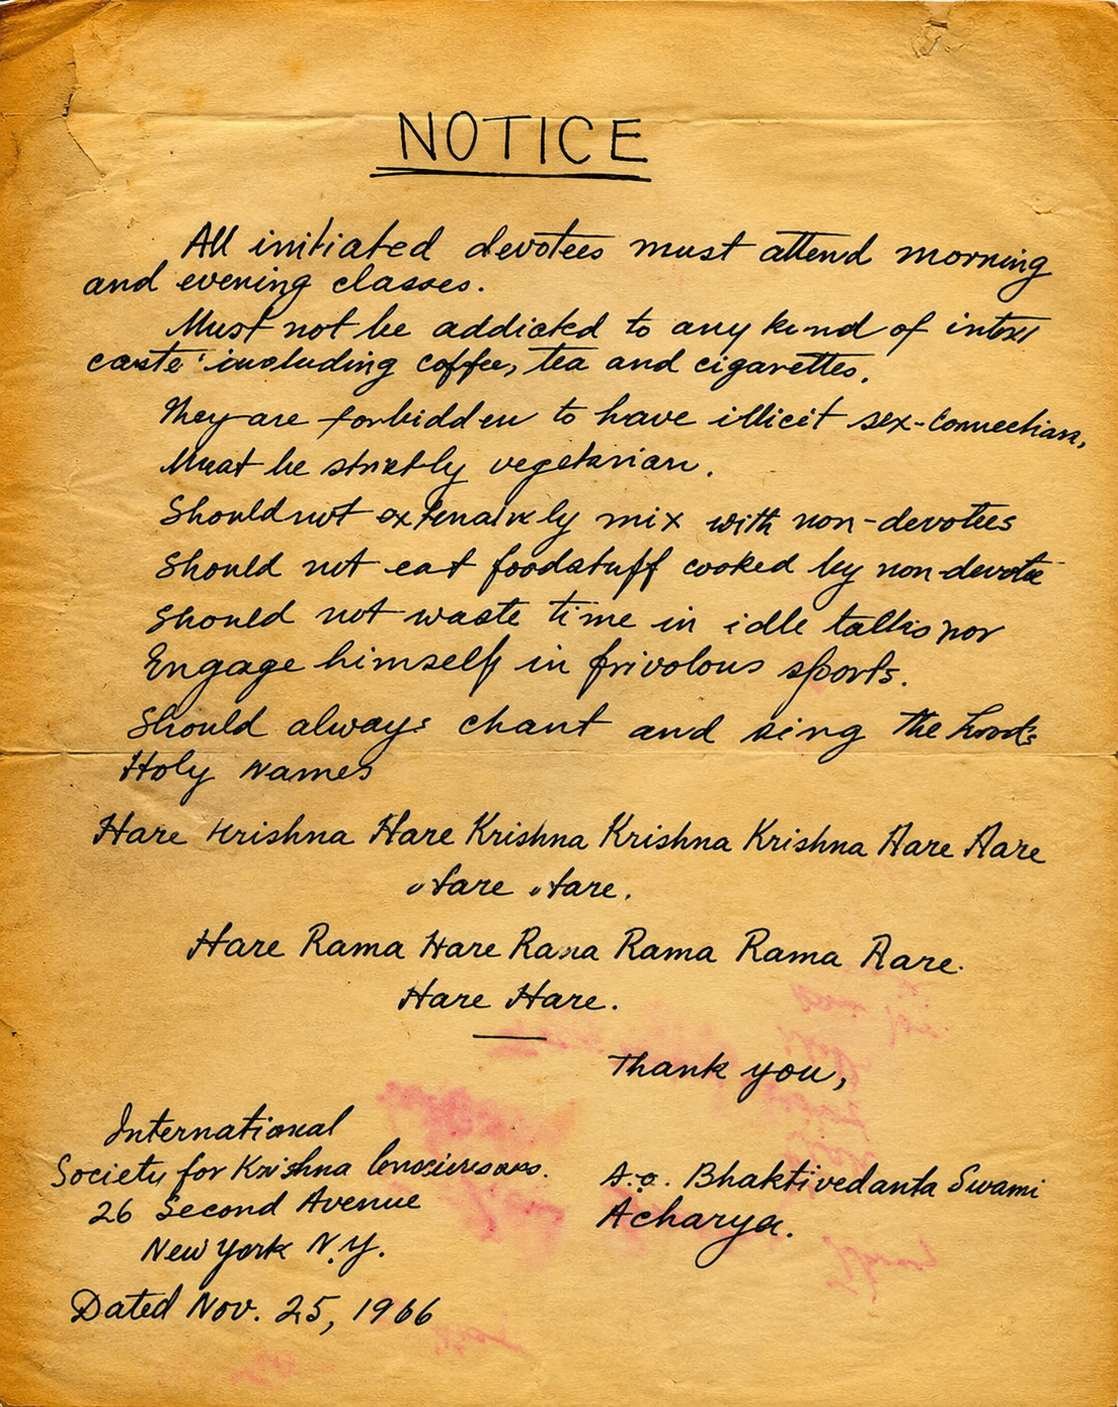 NOTICE
All initiated devotees must attend morning
and evening classes.
Must not be addicted to any kind of intoxi
caste including coffee, tea and cigarettes.
They are forbidden to have illicit sex-connections,
Must be strictly vegetarian.
Should not extensively mix with non-devotees
Should not eat foodstuff cooked by non-devote
Should not waste time in idle talks nor
Engage himself in frivolous sports.
Should always chant and sing the Lord's
Holy names
Hare Krishna Hare Krishna Krishna Krishna Hare Hare
Hare Hare.
Hare Rama Hare Rama Rama Rama Hare.
Hare Hare.
Thank you,
International
Society for Krishna Consciousness.
26 Second Avenue
New York N.Y.
Dated Nov. 25, 1966
A.C. Bhaktivedanta Swami
Acharya.